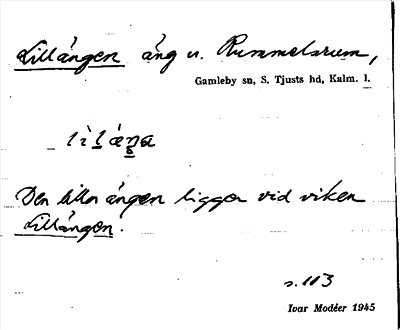 Lillängen äng u. Rummelsrum,
Gamleby sn, S. Tjusts hd, Kalm. l.
lìláŋa
Den lilla ängen ligger vid viken
Lillängen.
s. 113
Ivar Modéer 1945